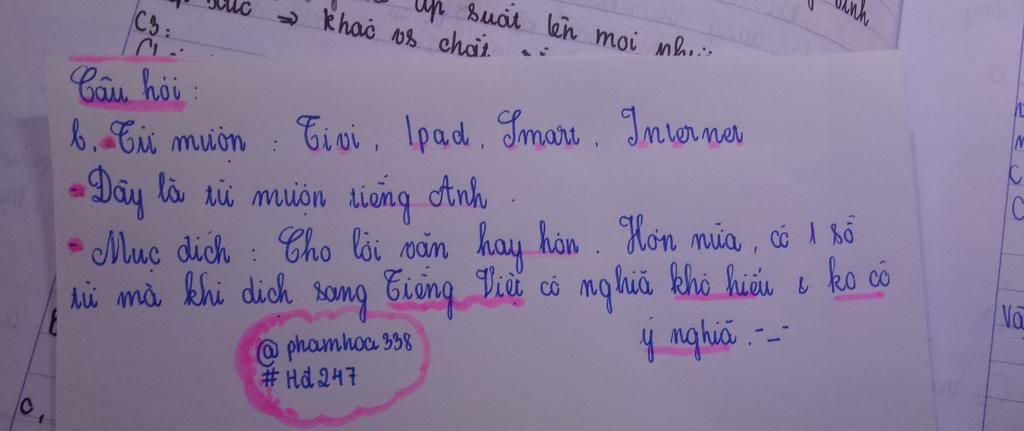 suất lên mọi
C3:
⇒ khác vs chất
Câu hỏi :
b. Từ mượn : Tivi, Ipad, Smart, Internet
- Đây là từ mượn tiếng Anh.
- Mục đích : Cho lời văn hay hơn. Hơn nữa, có 1 số
từ mà khi dịch sang Tiếng Việt có nghĩa khó hiểu & ko có
ý nghĩa. -_-
@phamhoa338
#Hđ247